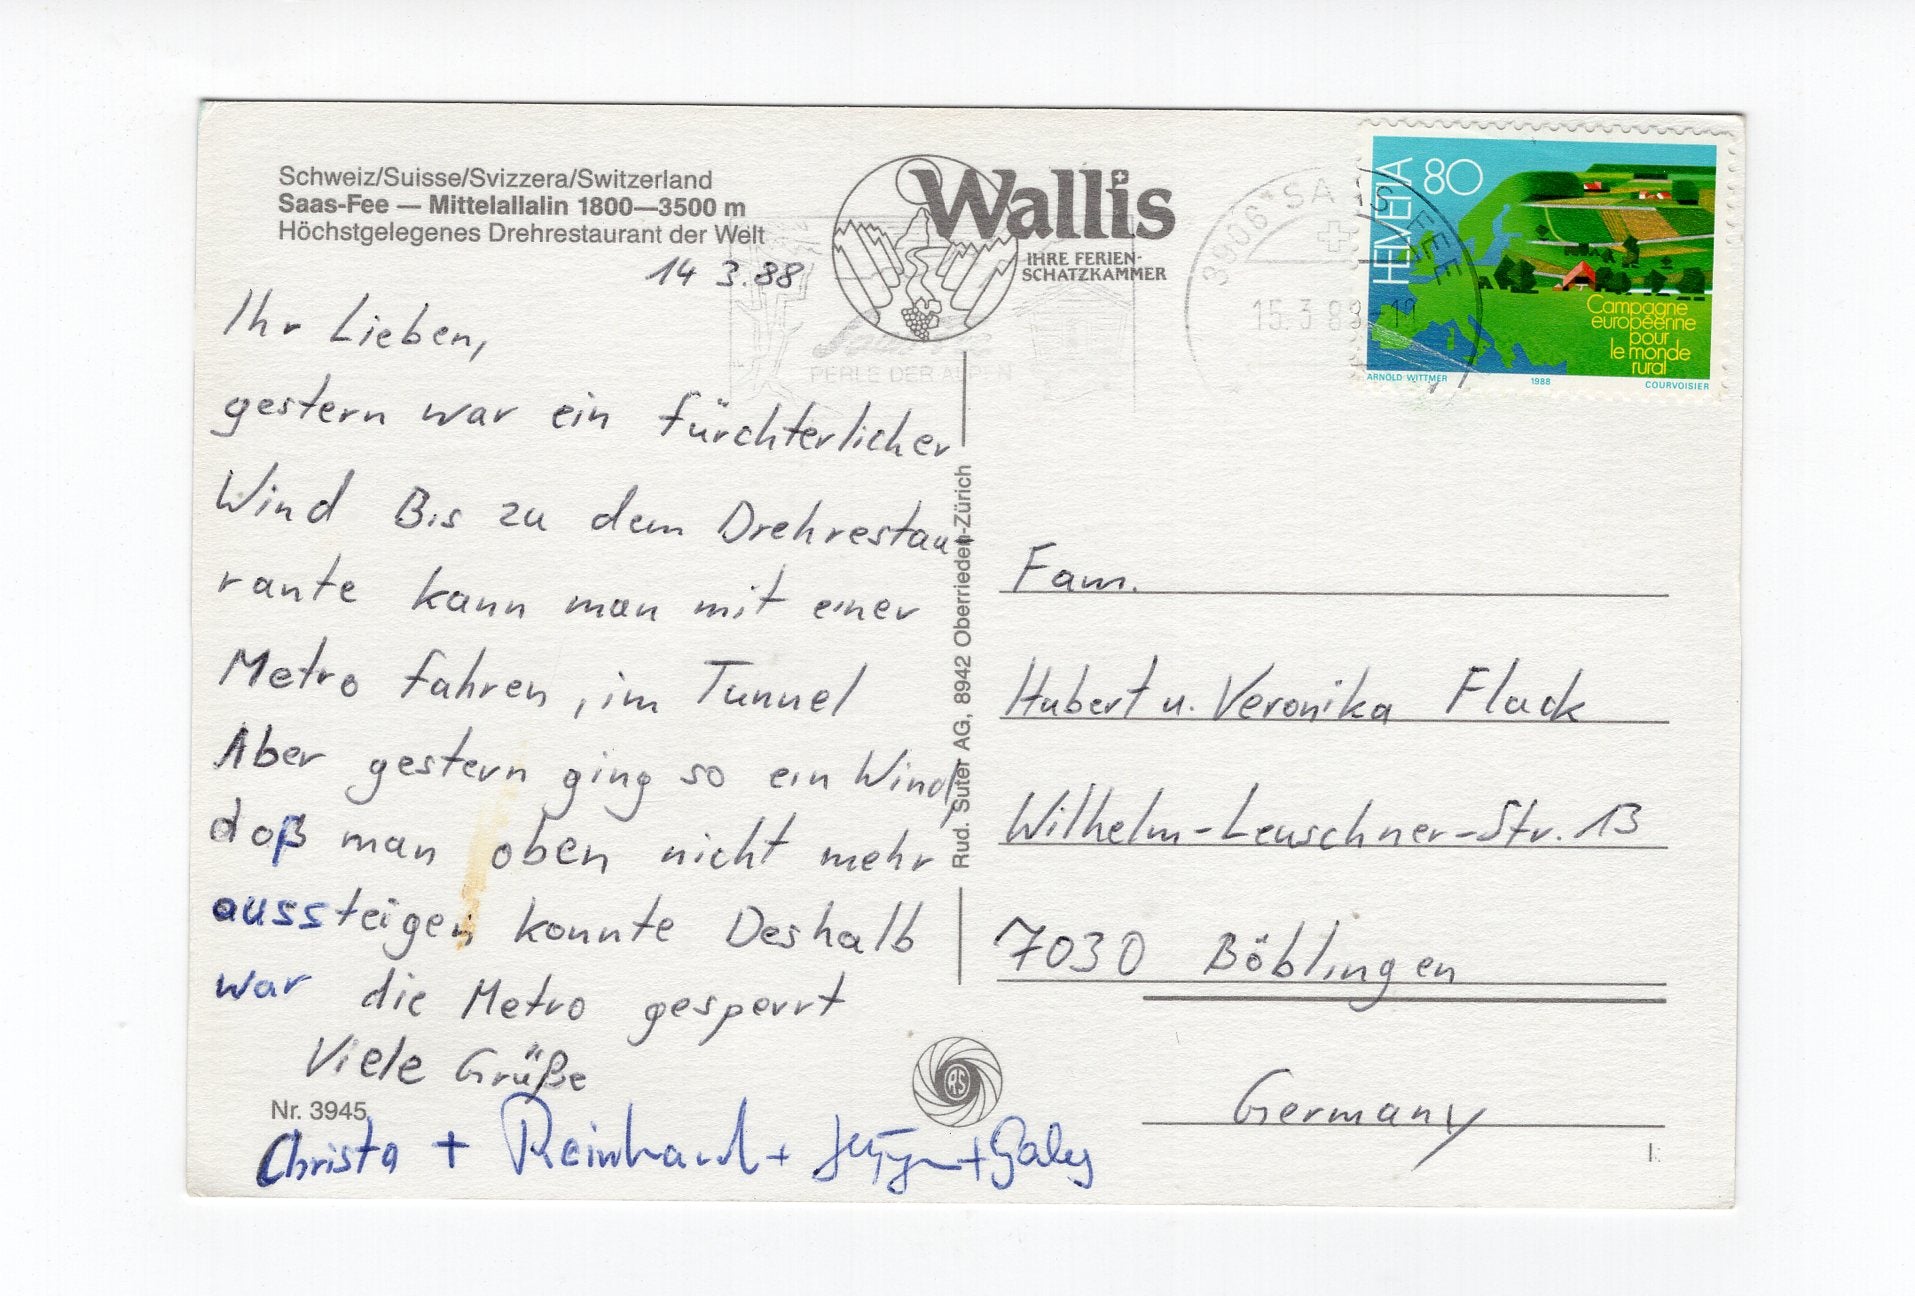 Schweiz/Suisse/Svizzera/Switzerland
Saas-Fee — Mittelallalin 1800—3500 m
Höchstgelegenes Drehrestaurant der Welt
Wallis
IHRE FERIEN-
SCHATZKAMMER
14 3.88
Ihr Lieben,
gestern war ein fürchterlicher
Wind Bis zu dem Drehrestau-
rante kann man mit einer
Metro fahren, im Tunnel
Aber gestern ging so ein Wind,
daß man oben nicht mehr
aussteigen konnte Deshalb
war die Metro gesperrt
Viele Grüße
Nr. 3945
Christa + Reinhard + Jürgen + Gaby
PERLE DER ALPEN
Rud. Suter AG, 8942 Oberrieden-Zürich
RS
3906 SAAS-FEE
15.3.88-18
HELVETIA 80
Campagne
européenne
pour
le monde
rural
ARNOLD WITTMER 1988 COURVOISIER
Fam.
Hubert u. Veronika Flack
Wilhelm-Leuschner-Str. 13
7030 Böblingen
Germany